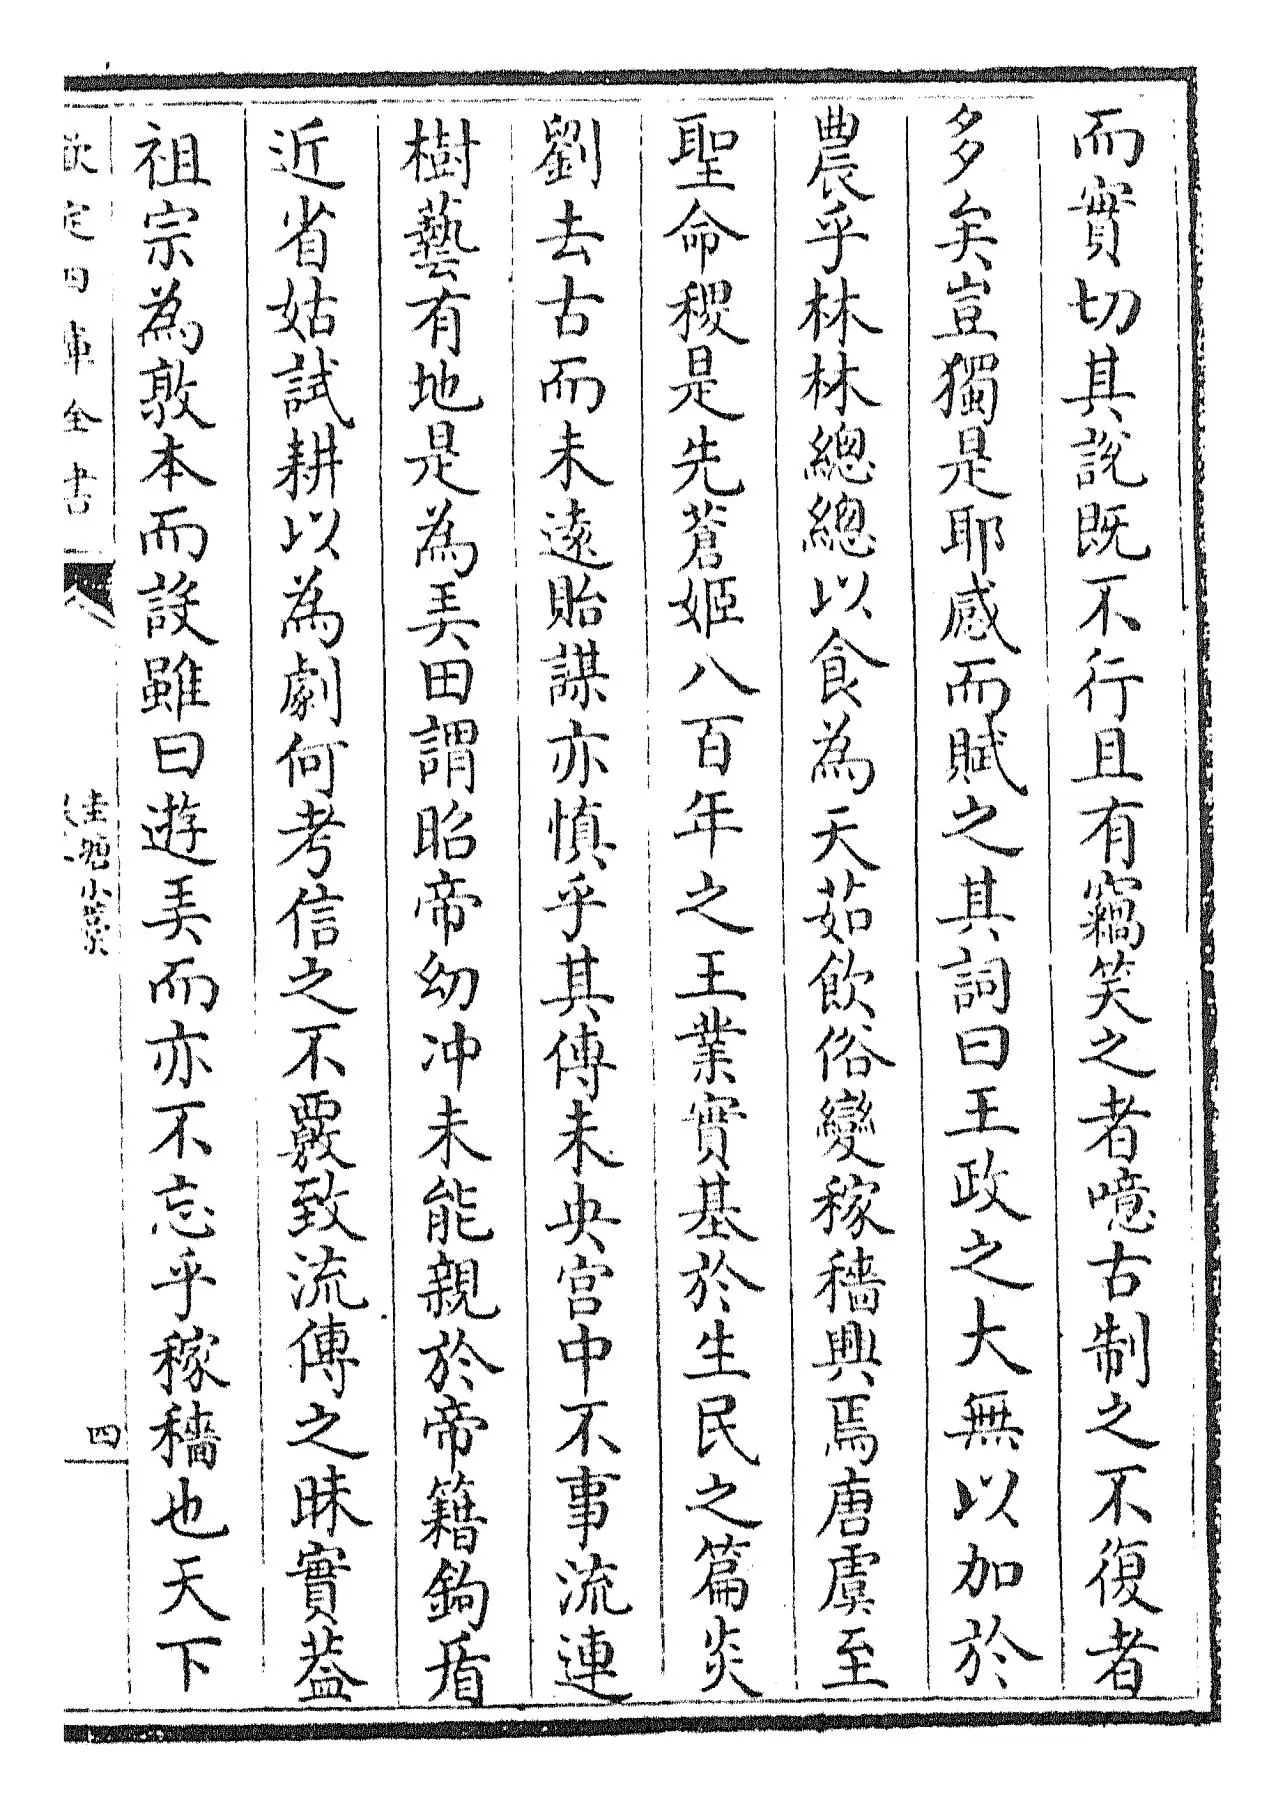 而實切其說既不行且有竊笑之者噫古制之不復者
多矣豈獨是耶感而賦之其詞曰王政之大無以加於
農乎林林總總以食為天茹飲俗變稼穡興焉唐虞至
聖命稷是先蒼姬八百年之王業實基於生民之篇炎
劉去古而未遠貽謀亦慎乎其傳未央宫中不事流連
樹藝有地是為弄田謂昭帝幼冲未能親於帝籍鉤盾
近省姑試耕以為劇何考信之不覈致流傳之昧實葢
祖宗為敦本而設雖曰遊弄而亦不忘乎稼穡也天下
欽定四庫全書
圭塘小藁
四